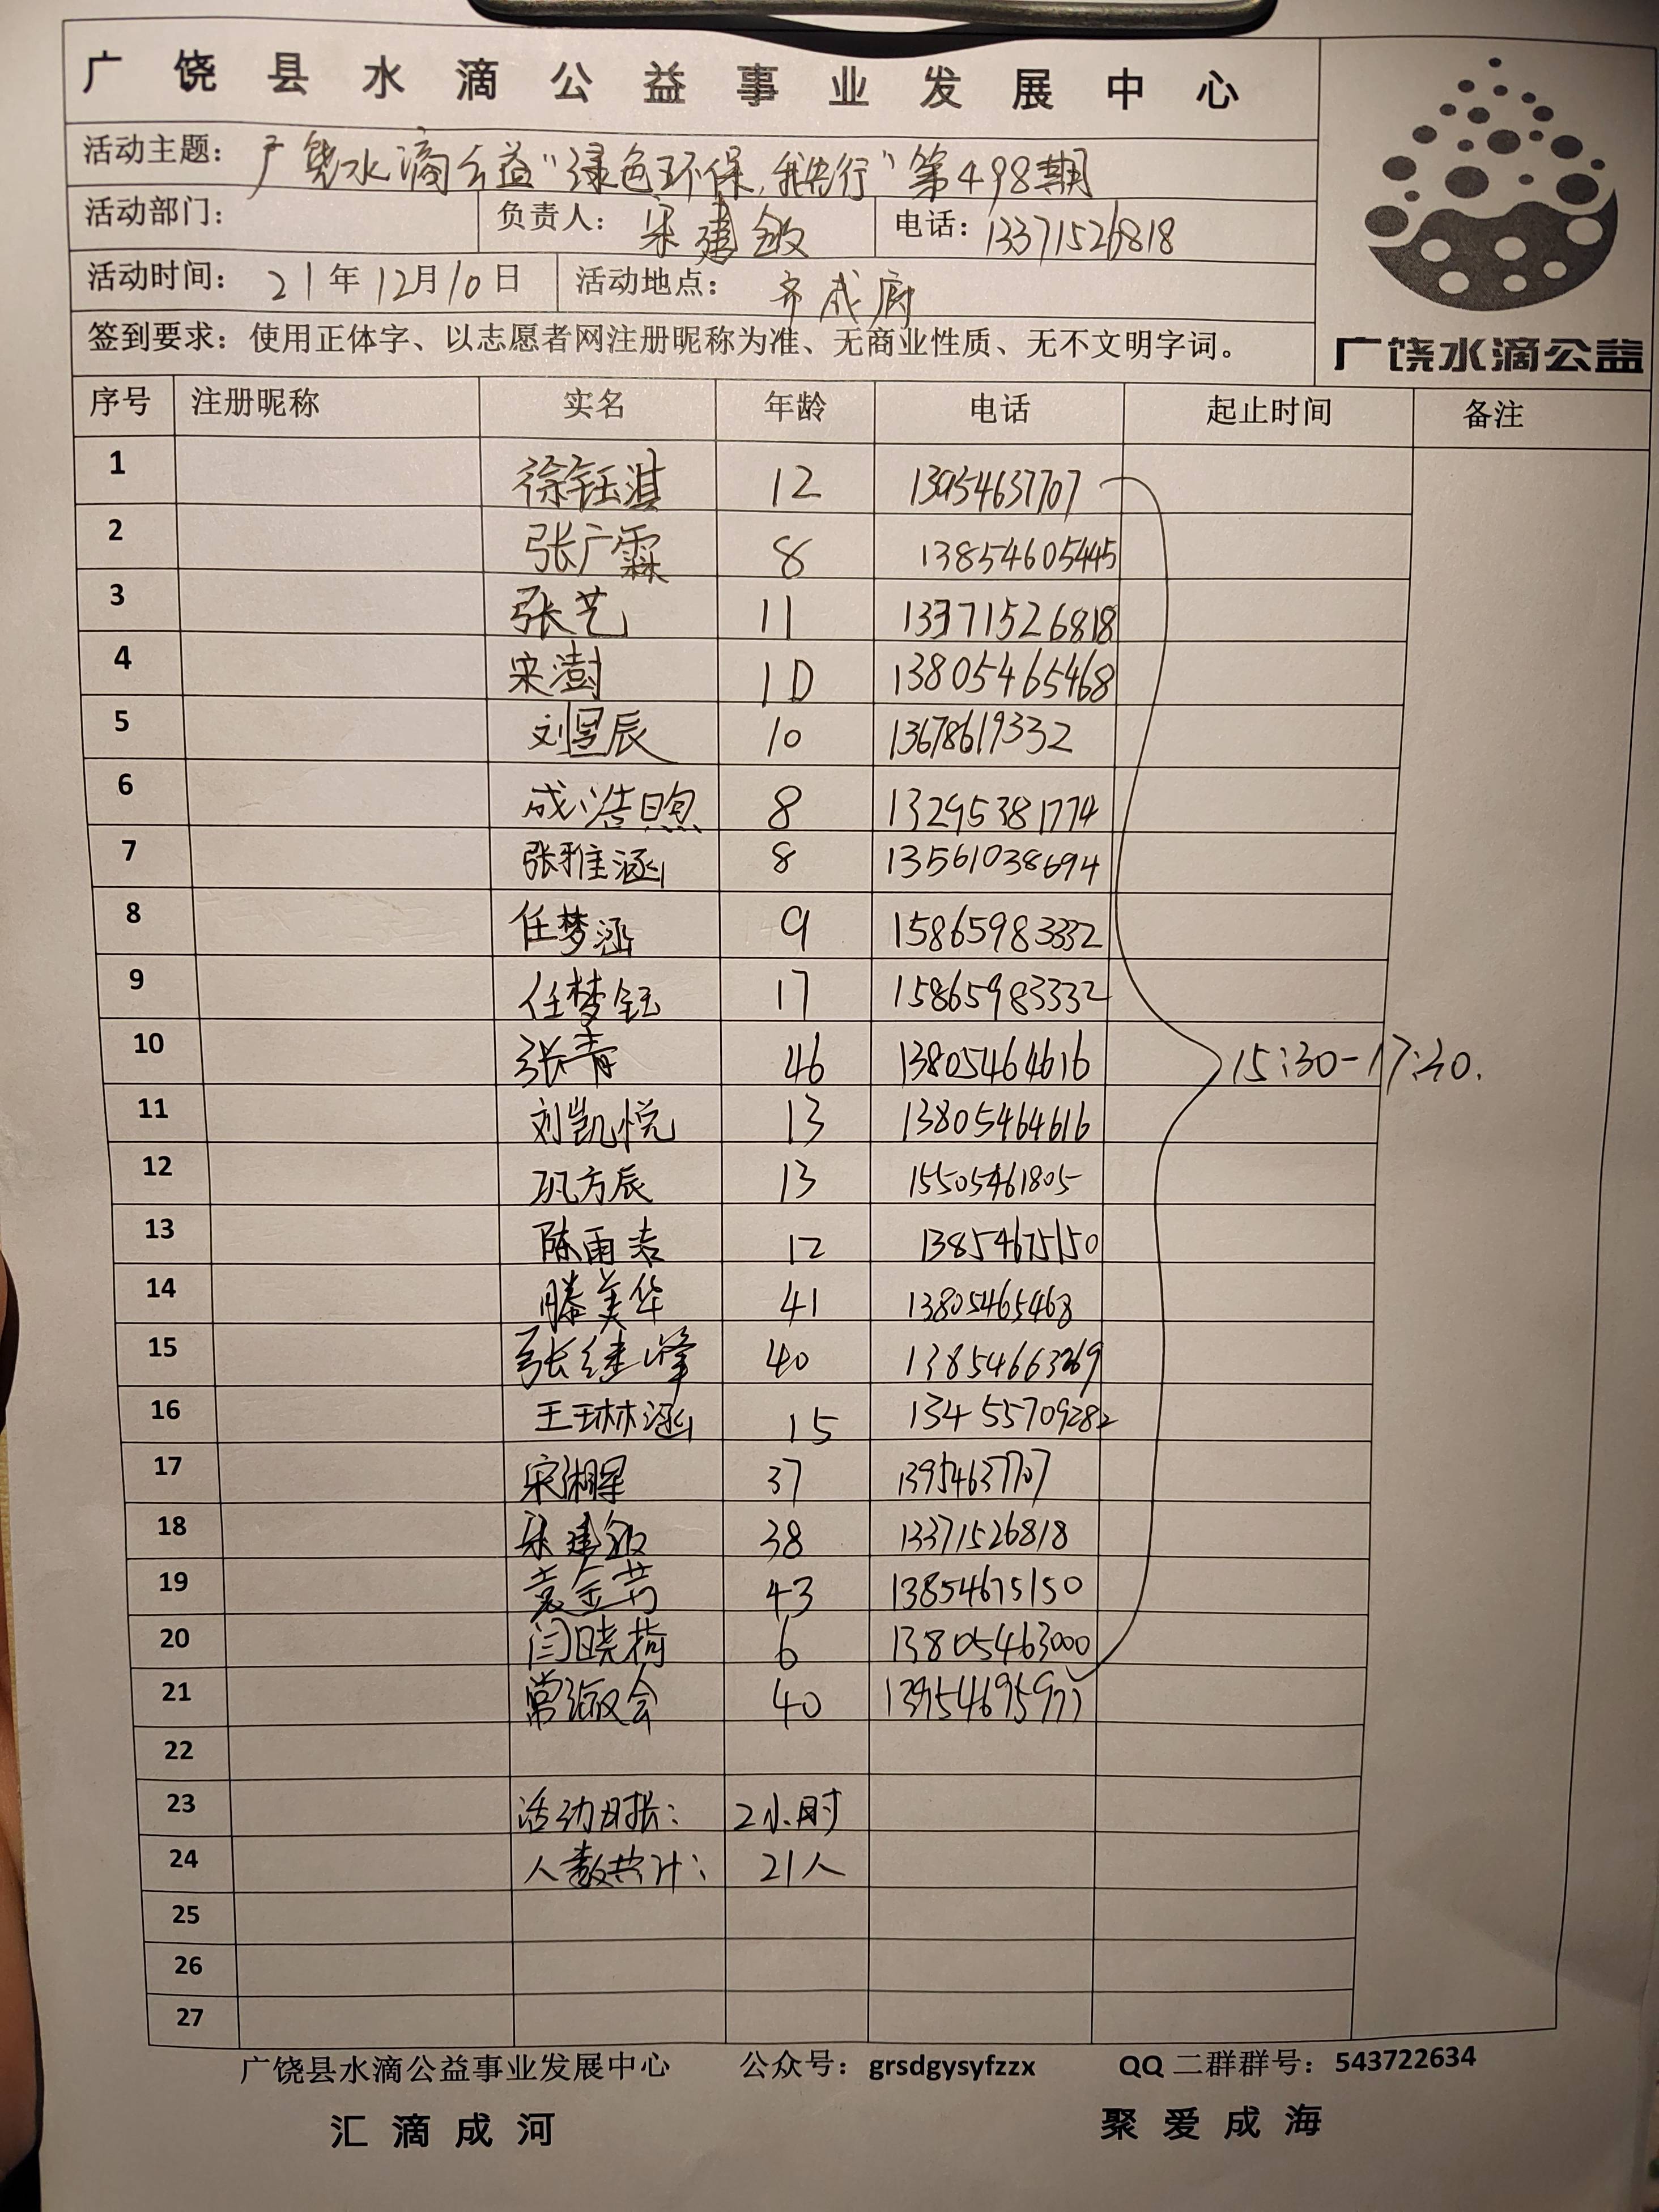 广饶县水滴公益事业发展中心
活动主题：广饶水滴公益“绿色环保,我先行”第498期
活动部门： 负责人：宋建敏 电话：13371526818
活动时间：21年12月10日 活动地点：齐成府
签到要求：使用正体字、以志愿者网注册昵称为准、无商业性质、无不文明字词。
广饶水滴公益
序号 注册昵称 实名 年龄 电话 起止时间 备注
1 徐钰淇 12 13954637707
2 张广霖 8 13854605445
3 张艺 11 13371526818
4 宋澍 10 13805465468
5 刘昱辰 10 13678619332
6 成浩煦 8 13295381774
7 张雅涵 8 13561038694
8 任梦涵 9 15865983332
9 任梦钰 17 15865983332
10 张青 46 13805464616 15:30-17:30.
11 刘凯悦 13 13805464616
12 巩方辰 13 15505461805
13 陈雨 12 13854675150
14 滕美华 41 13805465468
15 张继峰 40 13854663269
16 王琳涵 15 13455709282
17 宋湘 37 13954637707
18 宋建敏 38 13371526818
19 袁金芳 43 13854675150
20 闫晓荷 6 13805463000
21 常会 40 13954695977
22
23 活动时长： 2小时
24 人数共计： 21人
25
26
27
广饶县水滴公益事业发展中心 公众号：grsdgysyfzzx QQ二群群号：543722634
汇滴成河 聚爱成海